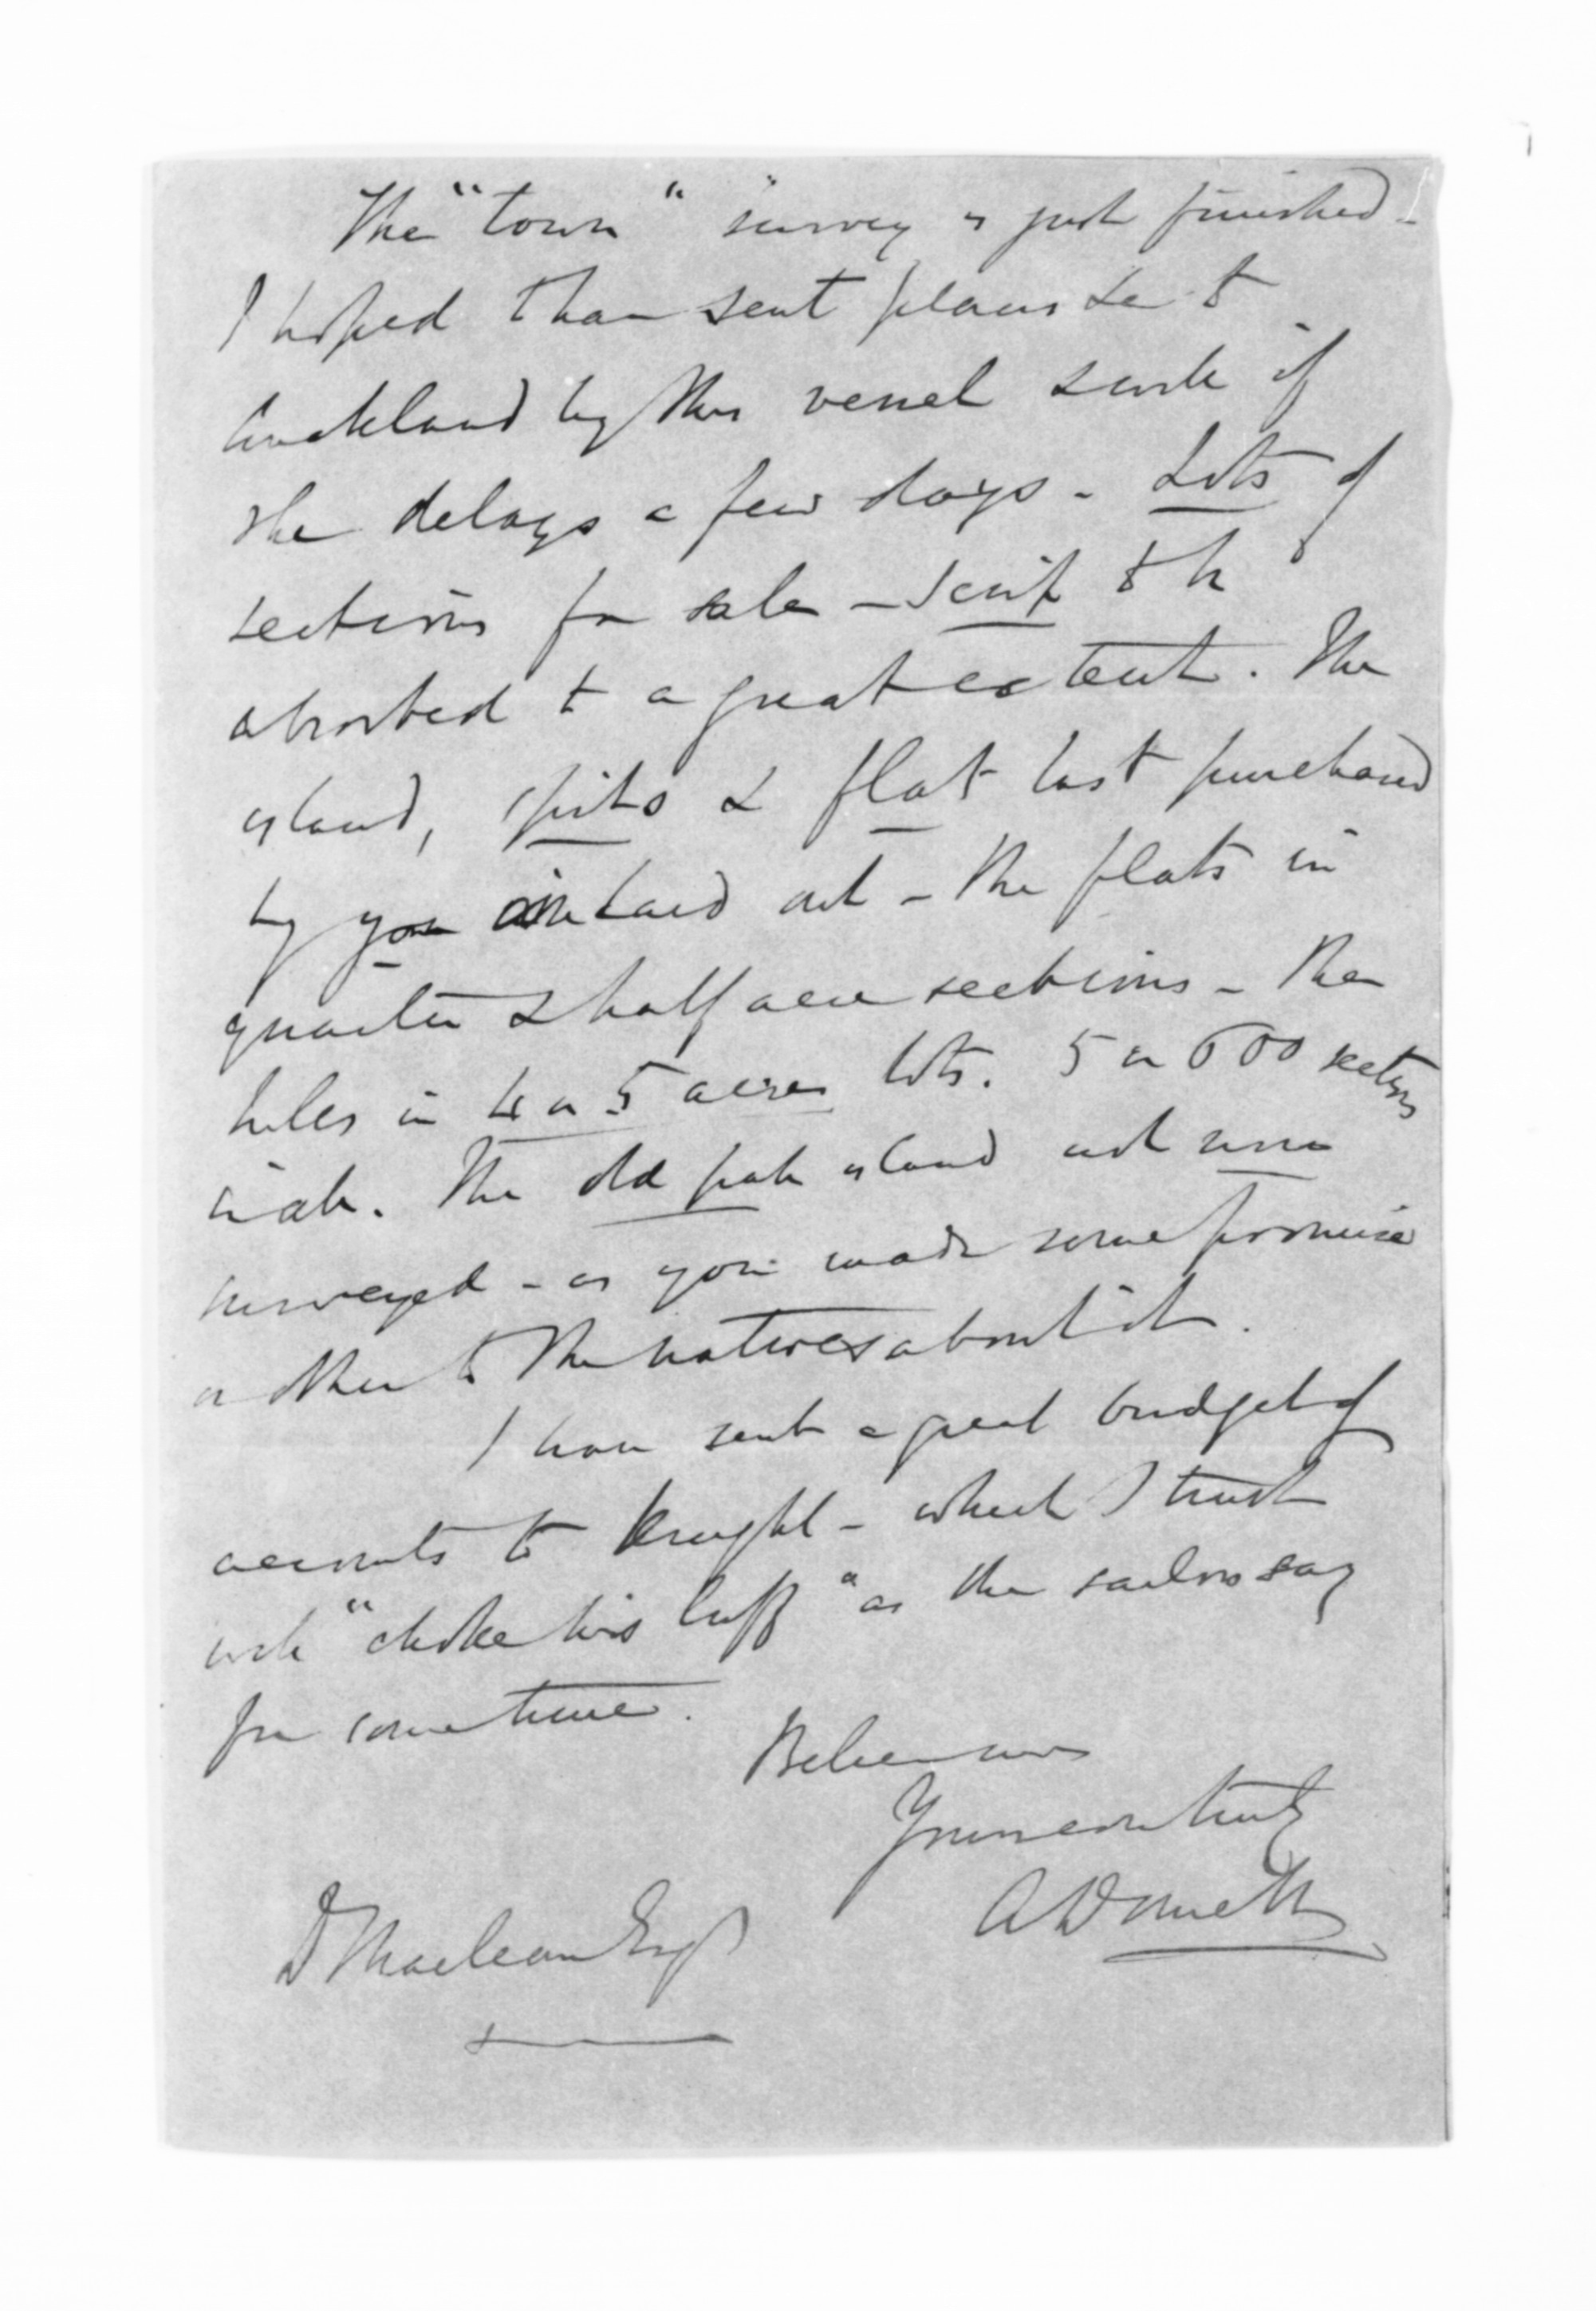 The "town" survey is just finished -
I hoped to have sent plans &c to
Auckland by this vessel & will if
she delays a few days - Lots of
sections for sale - scrip to be
absorbed to a great extent. The
island, spits & flat last purchased
by you are laid out - the flats in
quarter & half acre sections - the
hills in 4 or 5 acres lots. 5 or 600 sections
in all. The old pah island not
surveyed - as you made some promise
or other to the natives about it.
I have sent a great budget of
accounts to Knight - which I trust
will "choke his luff" as the sailors say
for some time.
Believe me
Yours very truly
A Domett
D Maclean Esqr